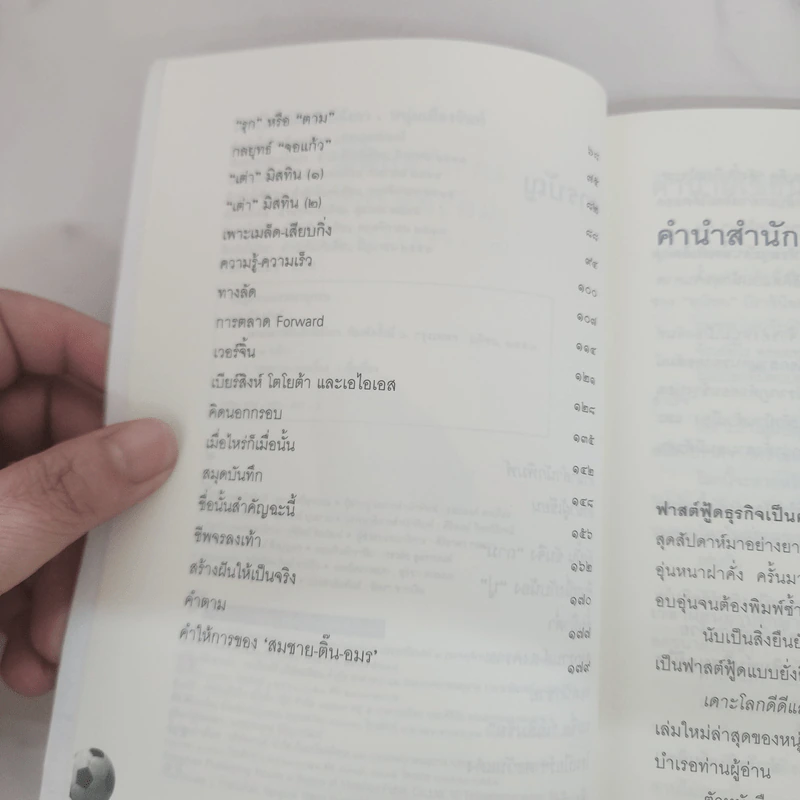 "รุก" หรือ "ตาม"
กลยุทธ์ "จอแก้ว" ๖๘
"เต่า" มิสทิน (๑) ๗๕
"เต่า" มิสทิน (๒) ๘๒
เพาะเมล็ด-เสียบกิ่ง ๘๘
ความรู้-ความเร็ว ๙๔
ทางลัด ๑๐๐
การตลาด Forward ๑๐๗
เวอร์จิ้น ๑๑๔
เบียร์สิงห์ โตโยต้า และเอไอเอส ๑๒๑
คิดนอกกรอบ ๑๒๘
เมื่อไหร่ก็เมื่อนั้น ๑๓๕
สมุดบันทึก ๑๔๒
ชื่อนั้นสำคัญฉะนี้ ๑๔๘
ชีพจรลงเท้า ๑๕๖
สร้างฝันให้เป็นจริง ๑๖๒
คำตาม ๑๗๐
คำให้การของ 'สมชาย-ติ๊น-อมร' ๑๗๗
๑๗๙
คำนำสำนัก
ฟาสต์ฟู้ดธุรกิจเป็น
สุดสัปดาห์มาอย่างยา
อุ่นหนาฝาคั่ง ครั้นมา
อบอุ่นจนต้องพิมพ์ซ้ำ
นับเป็นสิ่งยืนยั
เป็นฟาสต์ฟู้ดแบบยั่ง
เดาะโลกดีดีแ
เล่มใหม่ล่าสุดของหนุ่
บำเรอท่านผู้อ่าน